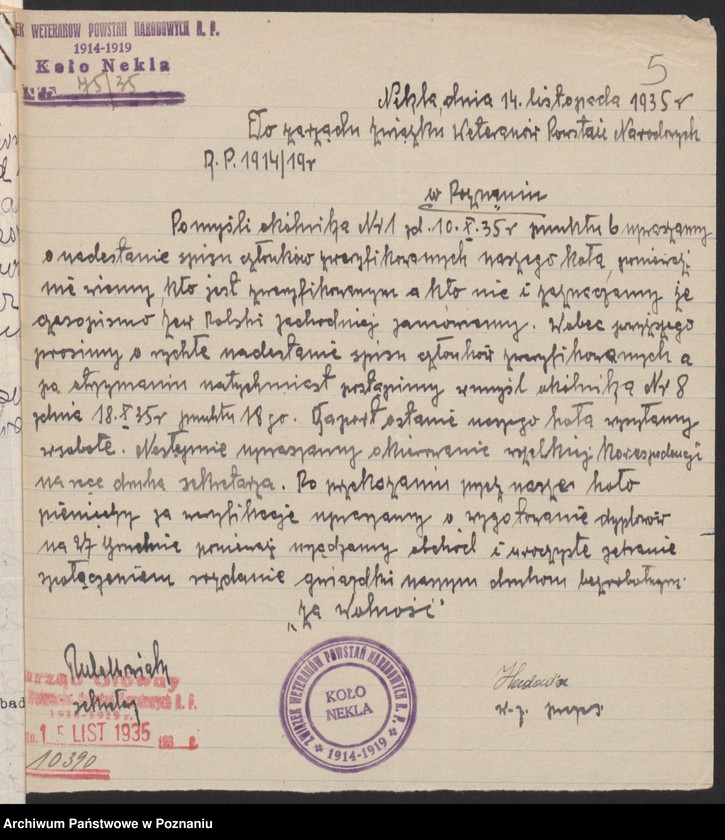 EK WETERANÓW POWSTAŃ NARODOWYCH R. P.
1914-1919
Koło Nekla
75/35
5
Nekla, dnia 14. listopada 1935 r
Do zarządu związku Weteranów Powstań Narodowych
R. P. 1914/19r
w Poznaniu
Pomyśli okólnika Nr 1 zd. 10. X. 35 r punktu 6 upraszamy
o nadesłanie spisu członków zweryfikowanych naszego koła, ponieważ
nie wiemy, kto jest zweryfikowanym a kto nie i zaznaczamy że
czasopismo zew Polski zachodniej zamówiemy. Wobec powyższego
prosimy o rychłe nadesłanie spisu członków zweryfikowanych a
po otrzymaniu natychmiast postąpimy wmyśl okólnika Nr 8
zdnia 18. X 35 r punktu 18 go. Raport ostanie naszego koła wysyłamy
wsobotę. Następnie upraszamy okierowanie wszelkiej Korespodencji
na ręce druha sekretarza. Po przekazaniu przez nasze koło
pieniędzy za weryfikacje upraszamy o wygotowanie dyplomów
na 27 Grudnia ponieważ urządzamy obchód i uroczyste zebranie
zpołączeniem rozdanie gwiazdki naszym druhom bezrobotnym.
"Za Wolność"
sekretarz
w. z. prezes
ZWIĄZEK WETERANÓW POWSTAŃ NARODOWYCH R. P.
KOŁO
NEKLA
1914-1919
Zarząd Główny
Narodowych R. P.
1914-1919 r.
15 LIST 1935
10390
bad
Archiwum Państwowe w Poznaniu